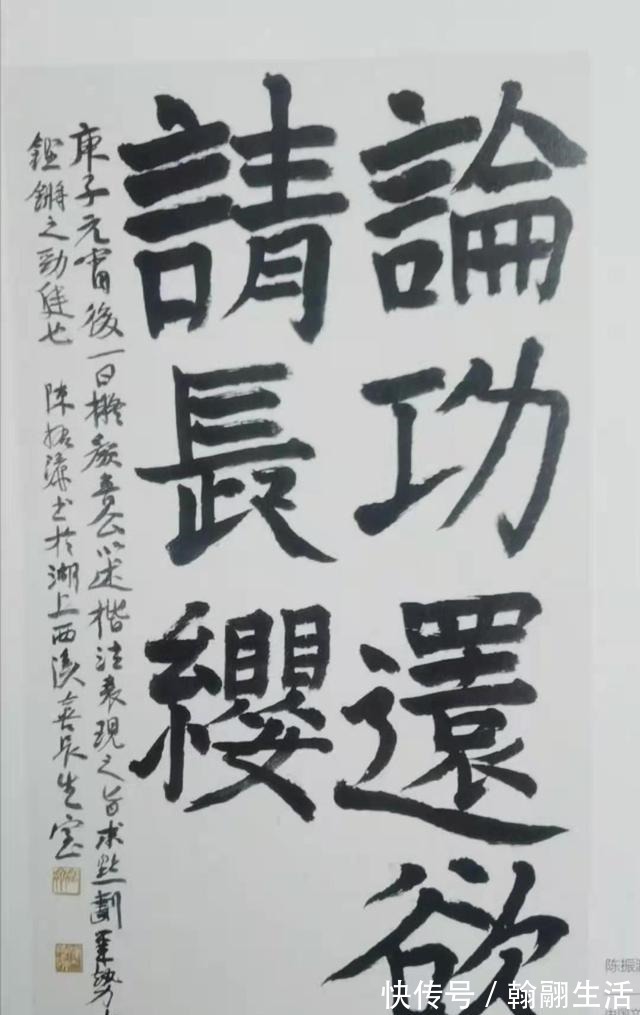 論功還欲
請長纓
庚子元宵後一日擬顏魯公以述楷法表現之旨求點劃
鏗鏘之勁健也 陳振濂書於湖上西溪
陈振
快传号/翰翮生活